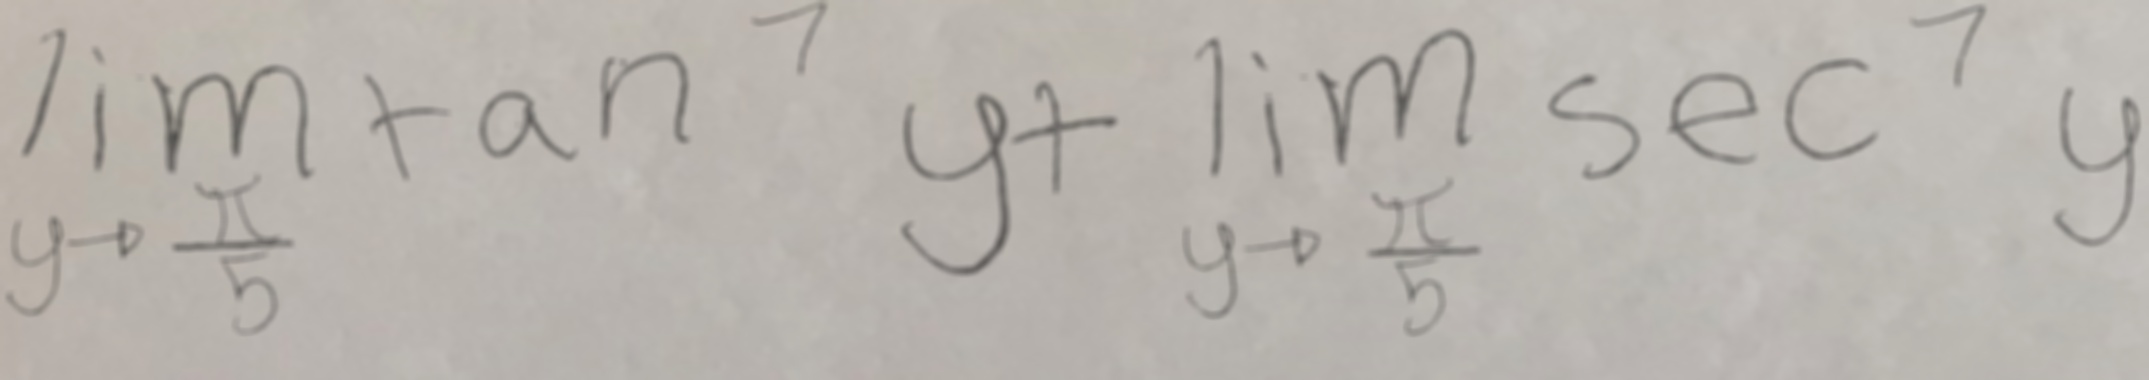 \lim_{y \to \frac{\pi}{5}} \tan^7 y + \lim_{y \to \frac{\pi}{5}} \sec^7 y